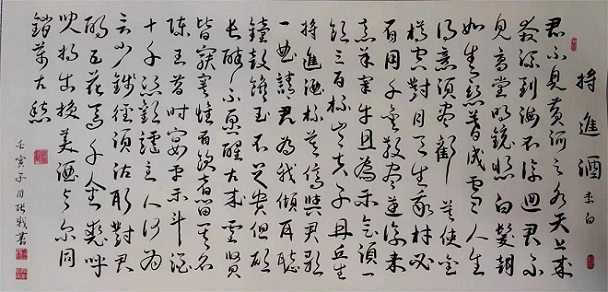 將進酒 李白
君不見黃河之水天上來
奔流到海不復回君不
見高堂明鏡悲白髮朝
如青絲暮成雪人生
得意須盡歡莫使金
樽空對月天生我材必
有用千金散盡還復來
烹羊宰牛且為樂會須一
飲三百杯岑夫子丹丘生
將進酒杯莫停與君歌
一曲請君為我傾耳聽
鐘鼓饌玉不足貴但願
長醉不願醒古來聖賢
皆寂寞惟有飲者留其名
陳王昔時宴平樂斗酒
十千恣歡謔主人何為
言少錢徑須沽取對君
酌五花馬千金裘呼
兒將出換美酒與爾同
銷萬古愁
壬寅子月張書